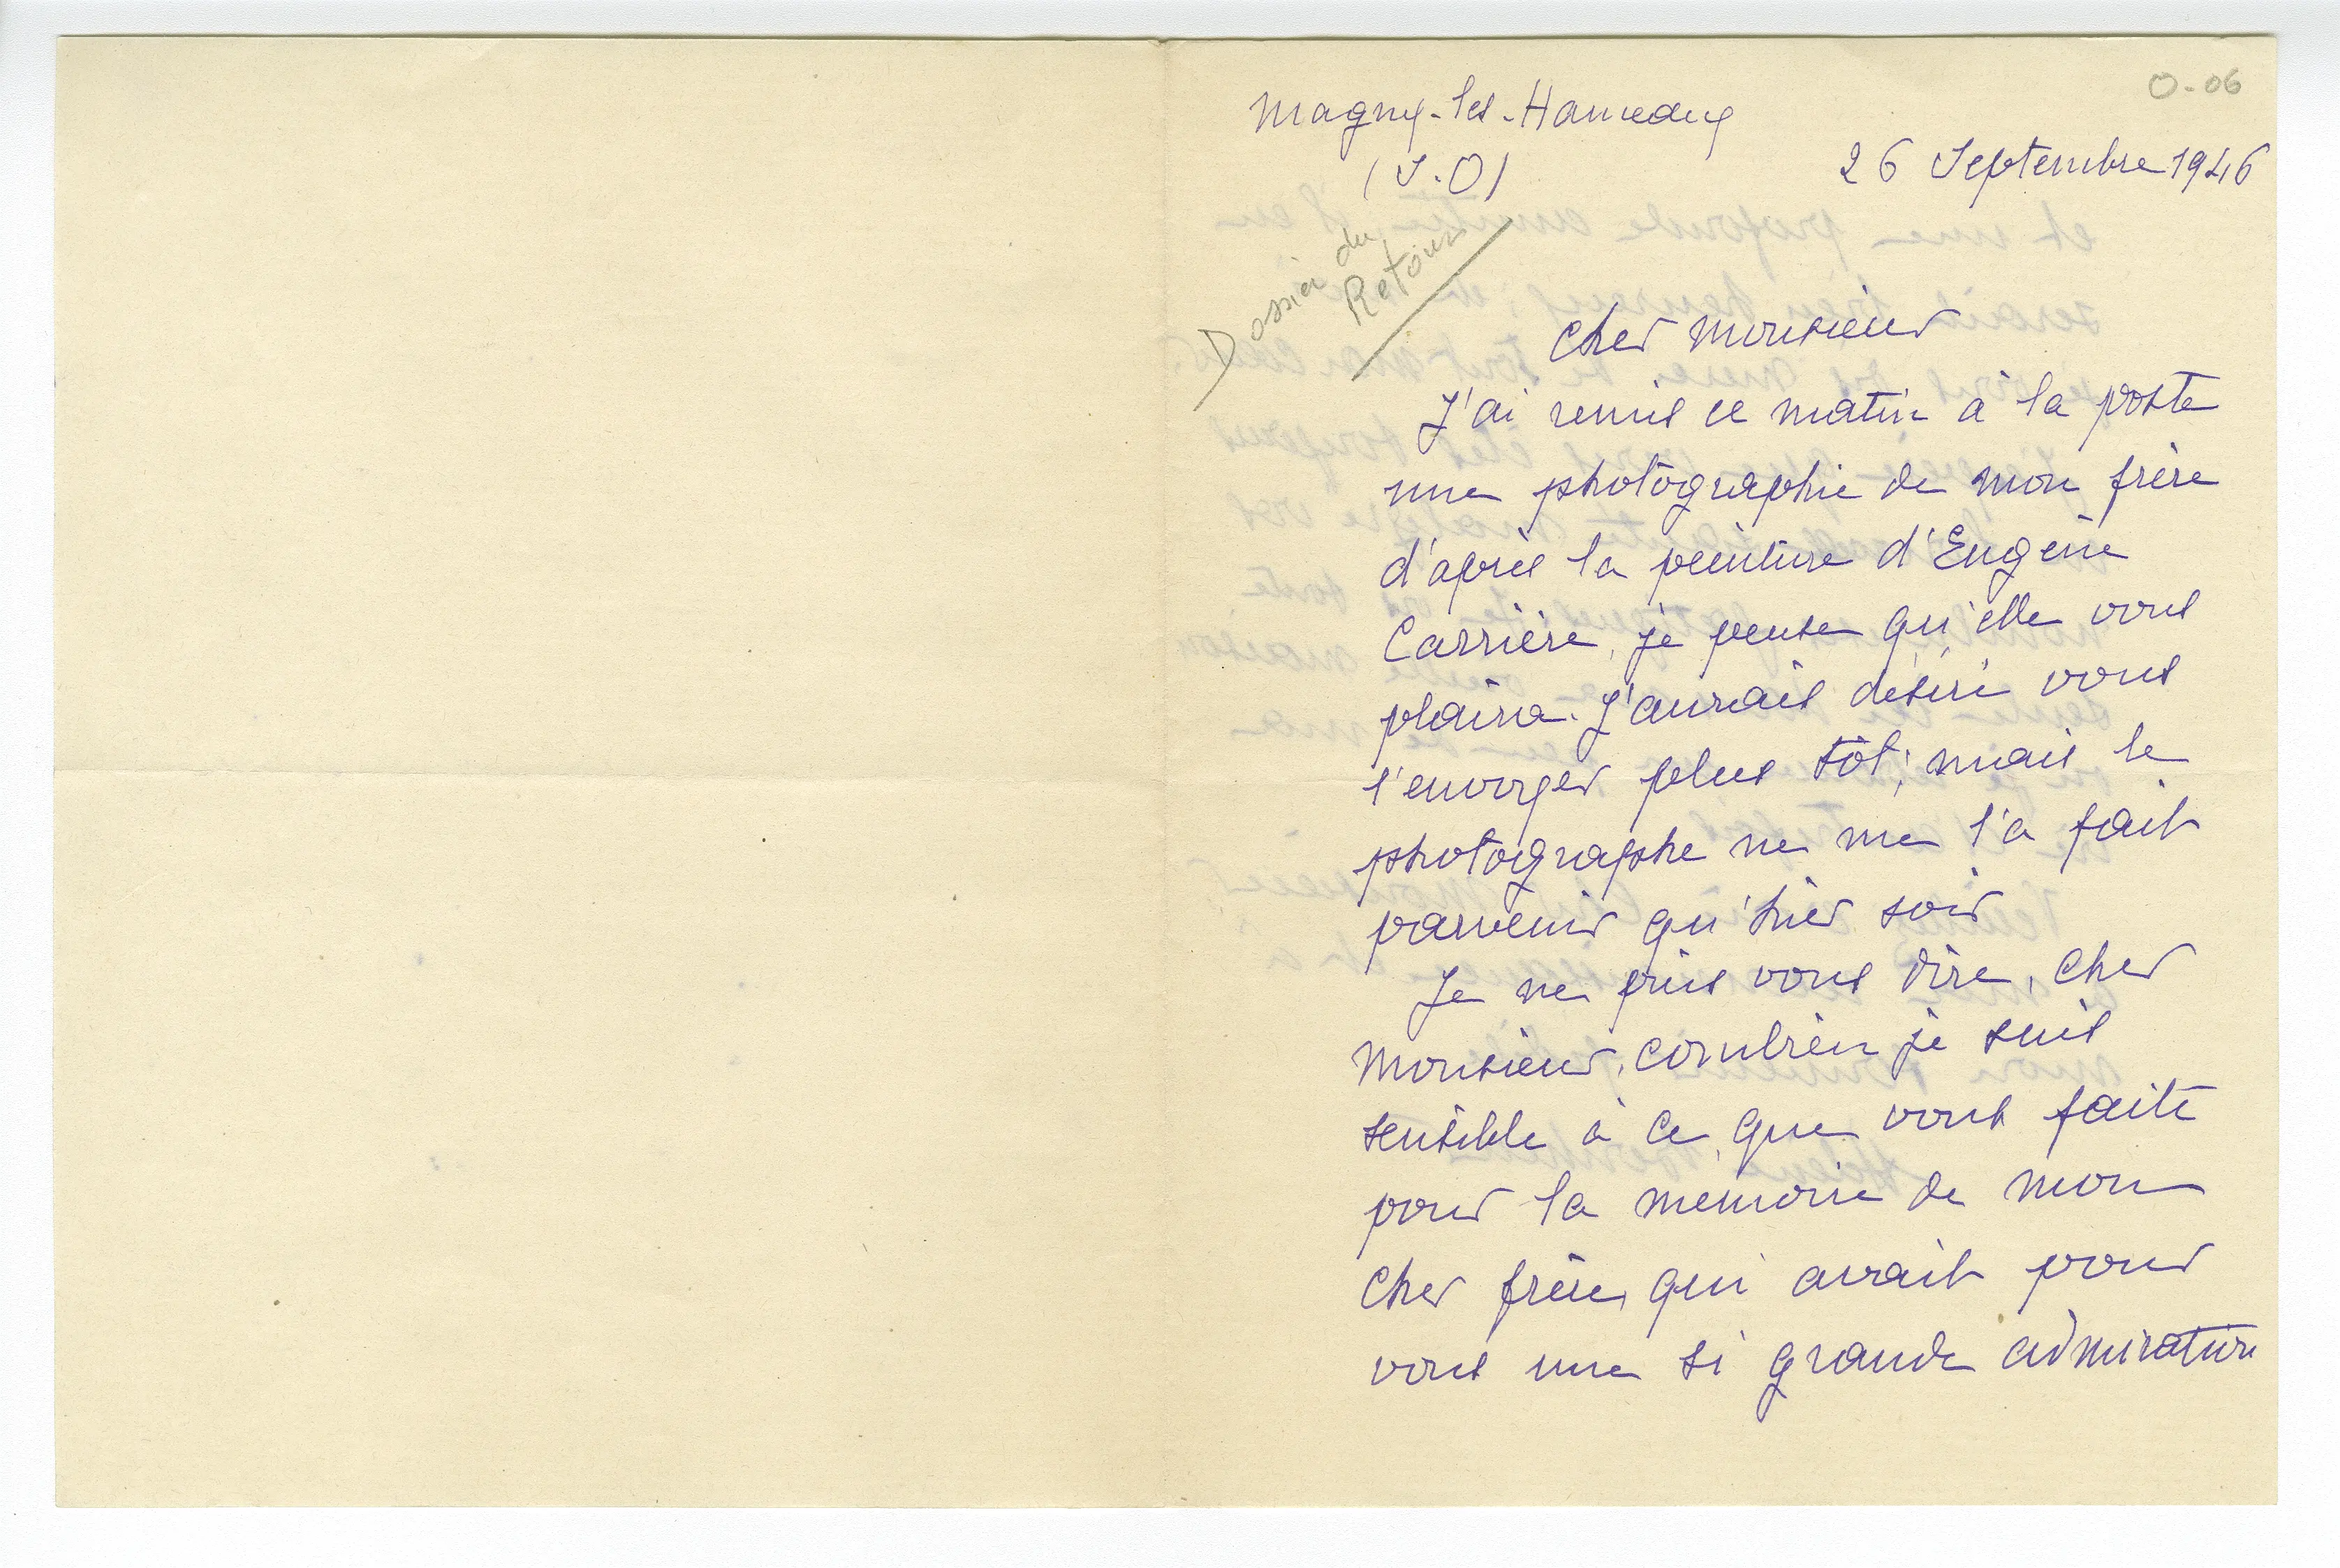 O-06
Magny-les-Hameaux
(S.O)
26 Septembre 1946
Dossier du
Retour
Cher Monsieur
J'ai remis ce matin à la poste
une photographie de mon frère
d'après la peinture d'Eugène
Carrière, je pense qu'elle vous
plaira. J'aurais désiré vous
l'envoyer plus tôt; mais le
photographe ne me l'a fait
parvenir qu'hier soir
Je ne puis vous dire, Cher
Monsieur, combien je suis
sensible à ce que vous faite
pour la mémoire de mon
Cher frère, qui avait pour
vous une si grande admiration